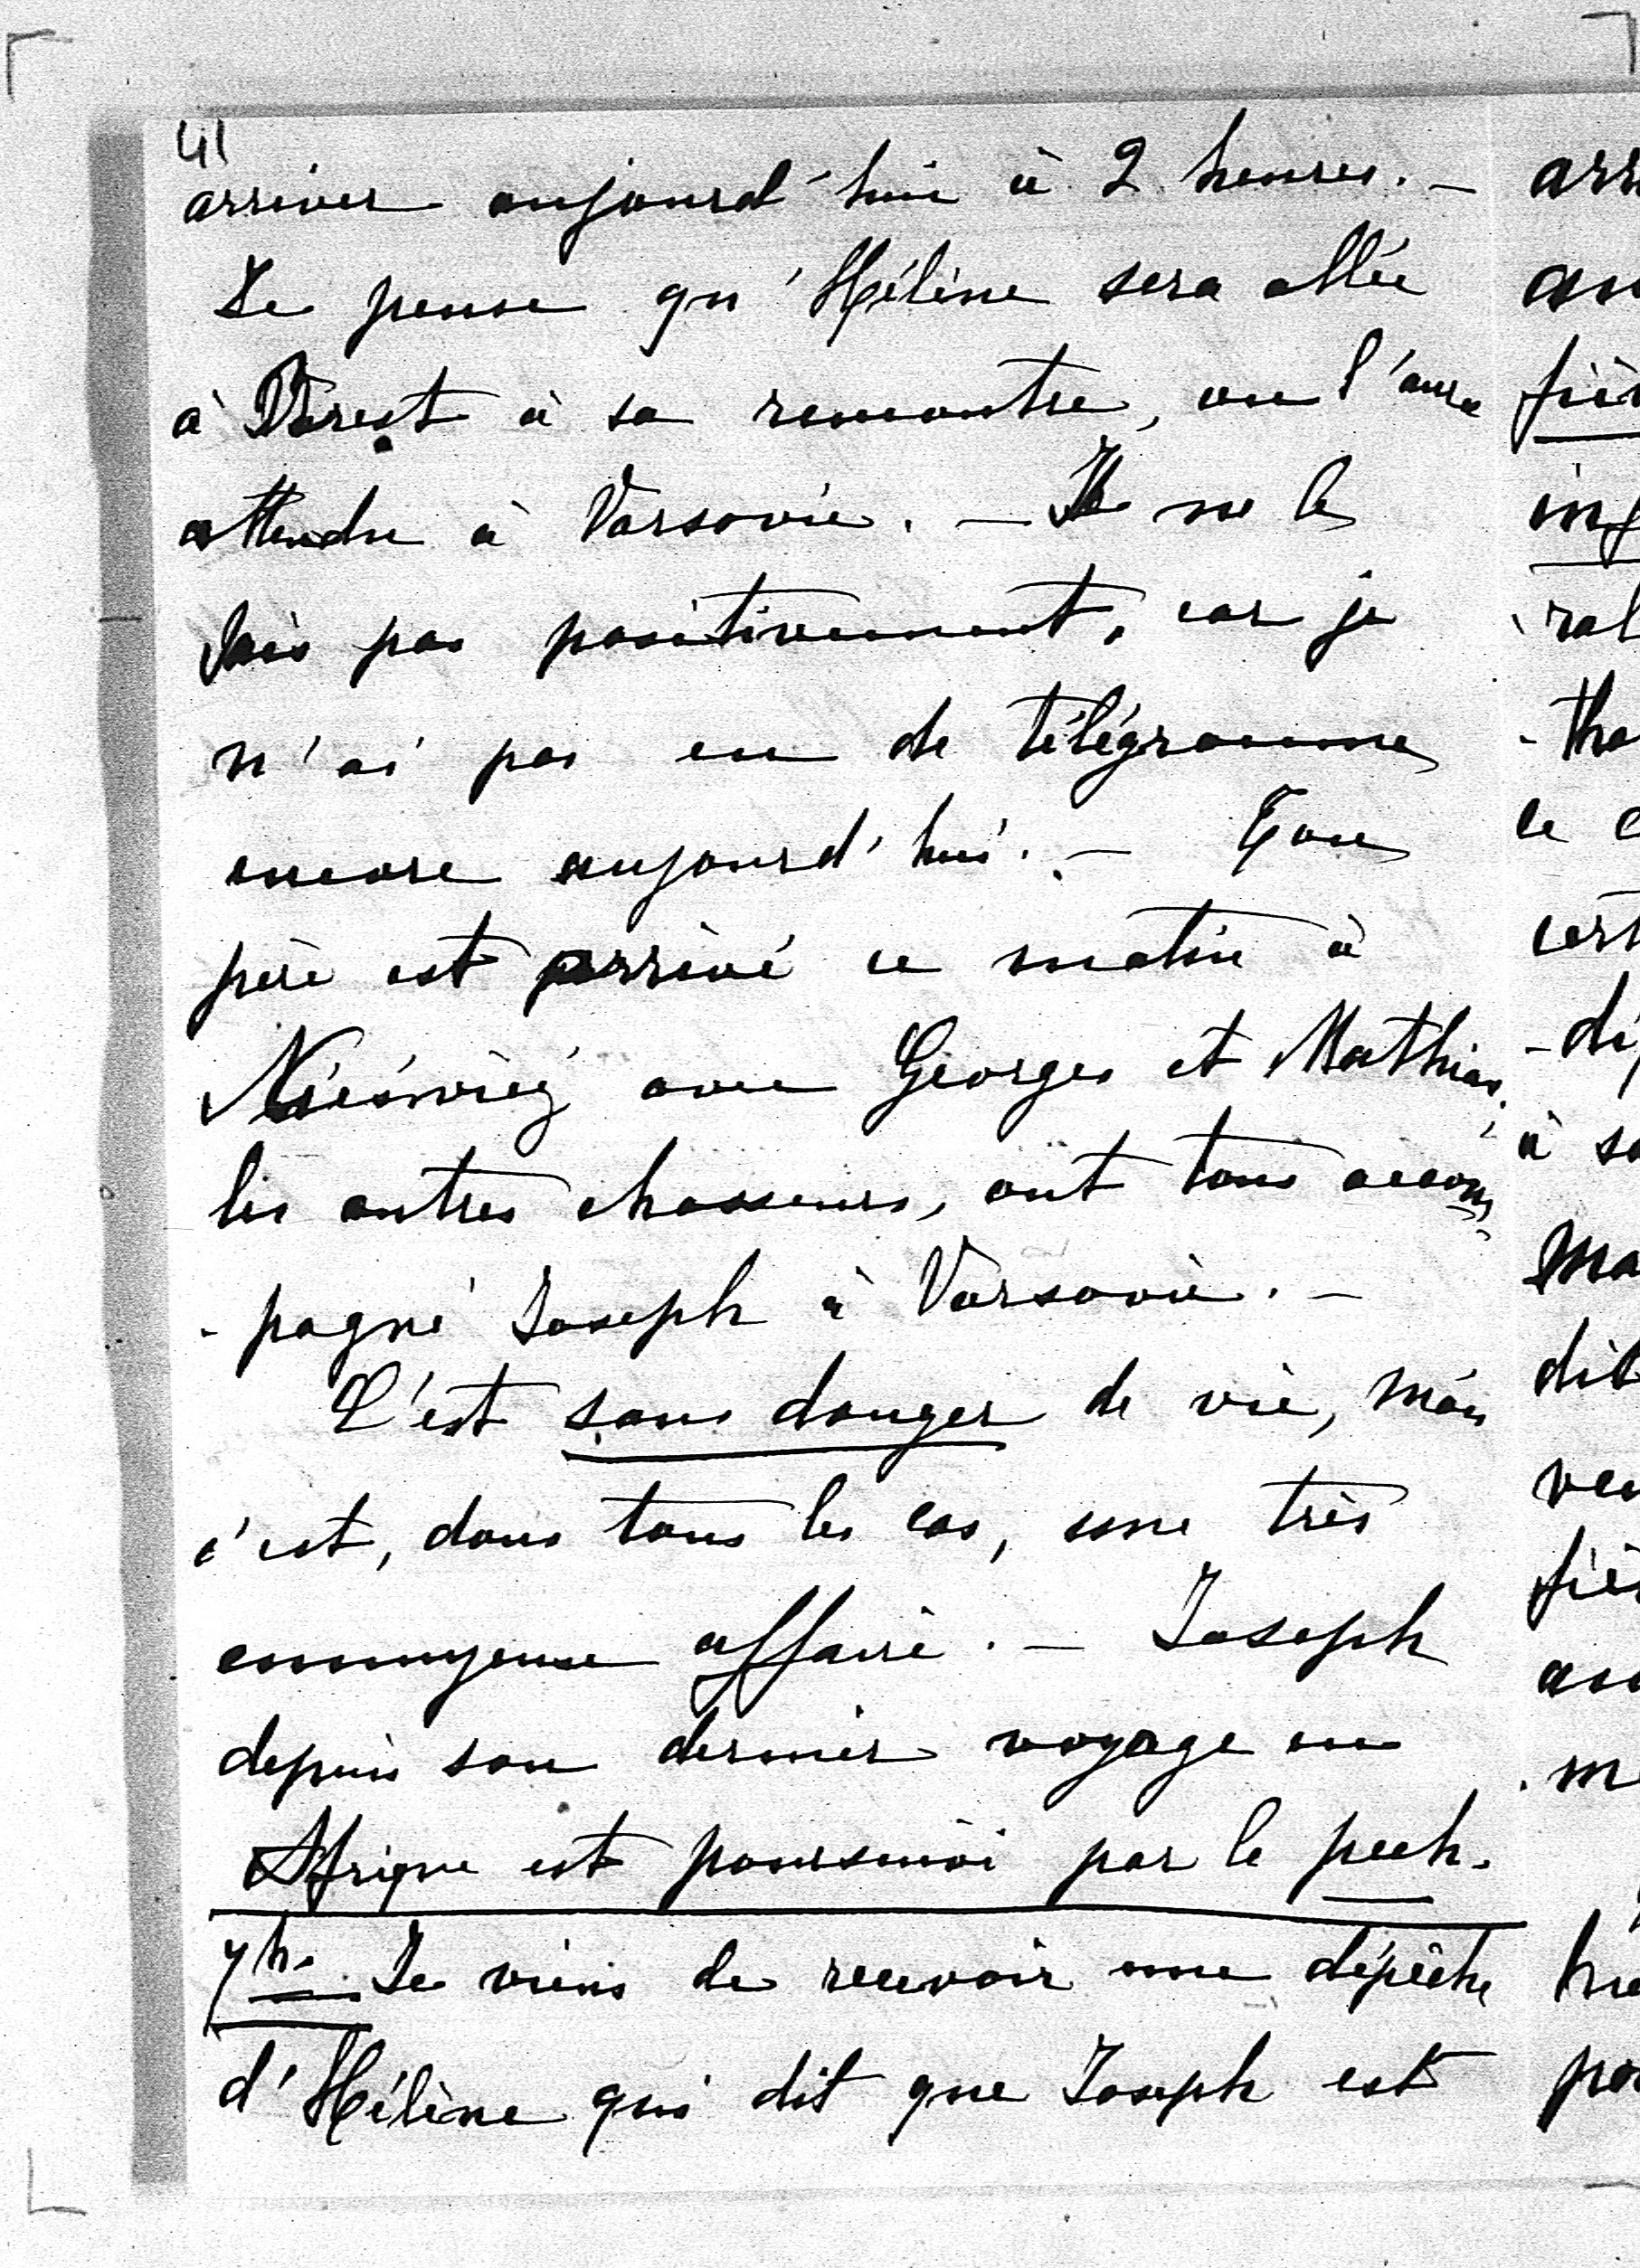 41
arriver aujourd'hui à 2 heures. —
Je pense qu'Hélène sera allée
à Brest à sa rencontre, ou l'aura
attendu à Varsovie. — Je ne le
sais pas positivement, car je
n'ai pas eu de télégramme
encore aujourd'hui. — Ton
père est arrivé ce matin à
Nieśwież avec Georges et Mathias,
les autres chasseurs, ont tous accom
- pagné Joseph à Varsovie. —
C'est sans danger de vie, mais
c'est, dans tous les cas, une très
ennuyeuse affaire. — Joseph
depuis son dernier voyage en
Afrique est poursuivi par le pech.
7h. Je viens de recevoir une dépêche
d'Hélène qui dit que Joseph est